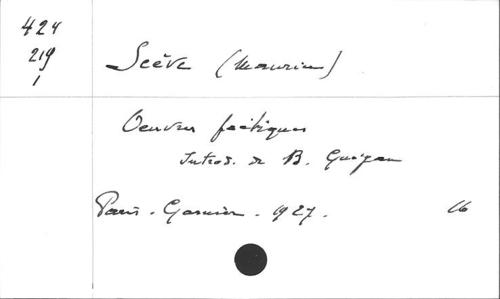 424
219
1
Scève (Maurice)
Oeuvres poétiques
Introd. de B. Guégan
Paris. Garnier. 1927. 16